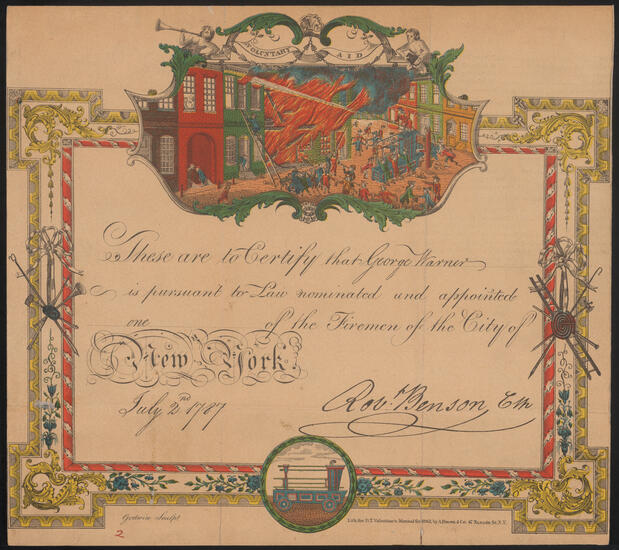 VOLUNTARY AID
These are to Certify that George Warner
is pursuant to Law nominated and appointed
one of the Firemen of the City of
New York.
July 2nd 1787
Robt Benson, Clk
Godwin Sculpt.
Lith. for D.T. Valentine's Manual for 1862, by A. Brown & Co. 47 Nassau St. N.Y.
2